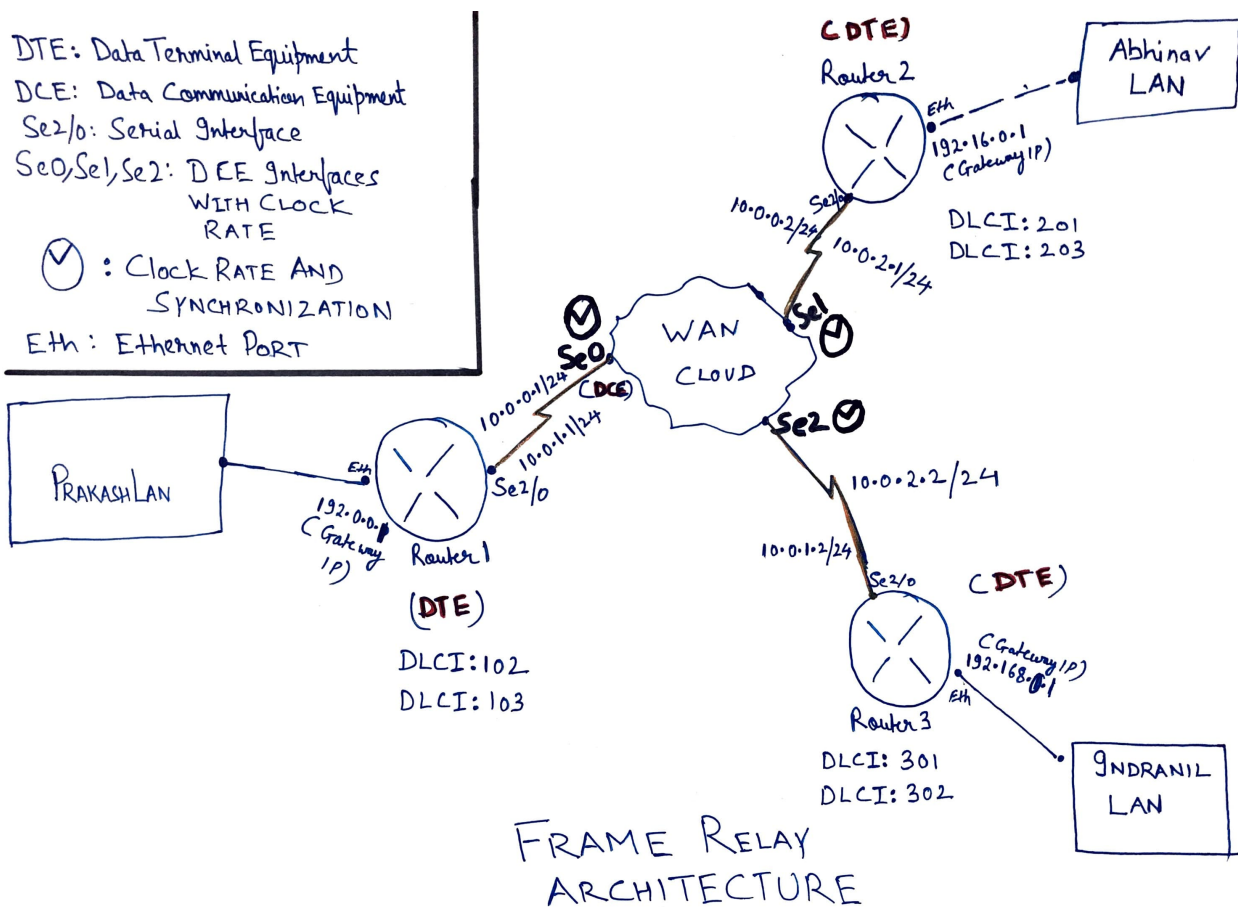 DTE: Data Terminal Equipment
DCE: Data Communication Equipment
Se2/0: Serial Interface
Se0,Se1,Se2: DCE Interfaces
WITH CLOCK
RATE
: Clock RATE AND
SYNCHRONIZATION
Eth: Ethernet PORT
(DTE)
Router2
Eth
192.16.0.1
(Gateway IP)
Abhinav
LAN
Se2/0
10.0.0.2/24
10.0.2.1/24
DLCI:201
DLCI:203
Se1
WAN
CLOUD
Se0
(DCE)
Se2
10.0.0.1/24
10.0.1.1/24
PRAKASH LAN
Eth
192.0.0.1
(Gateway
IP)
Se2/0
Router1
(DTE)
DLCI:102
DLCI:103
10.0.2.2/24
10.0.1.2/24
Se2/0
(DTE)
(Gateway IP)
192.168.0.1
Eth
Router3
DLCI: 301
DLCI: 302
INDRANIL
LAN
FRAME RELAY
ARCHITECTURE